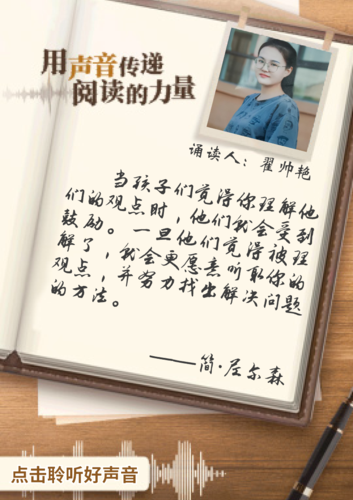 用声音传递
阅读的力量
诵读人：翟帅艳
当孩子们觉得你理解他
们的观点时，他们就会受到
鼓励。一旦他们觉得被理
解了，就会更愿意听取你的
观点，并努力找出解决问题
的方法。
——简·尼尔森
点击聆听好声音